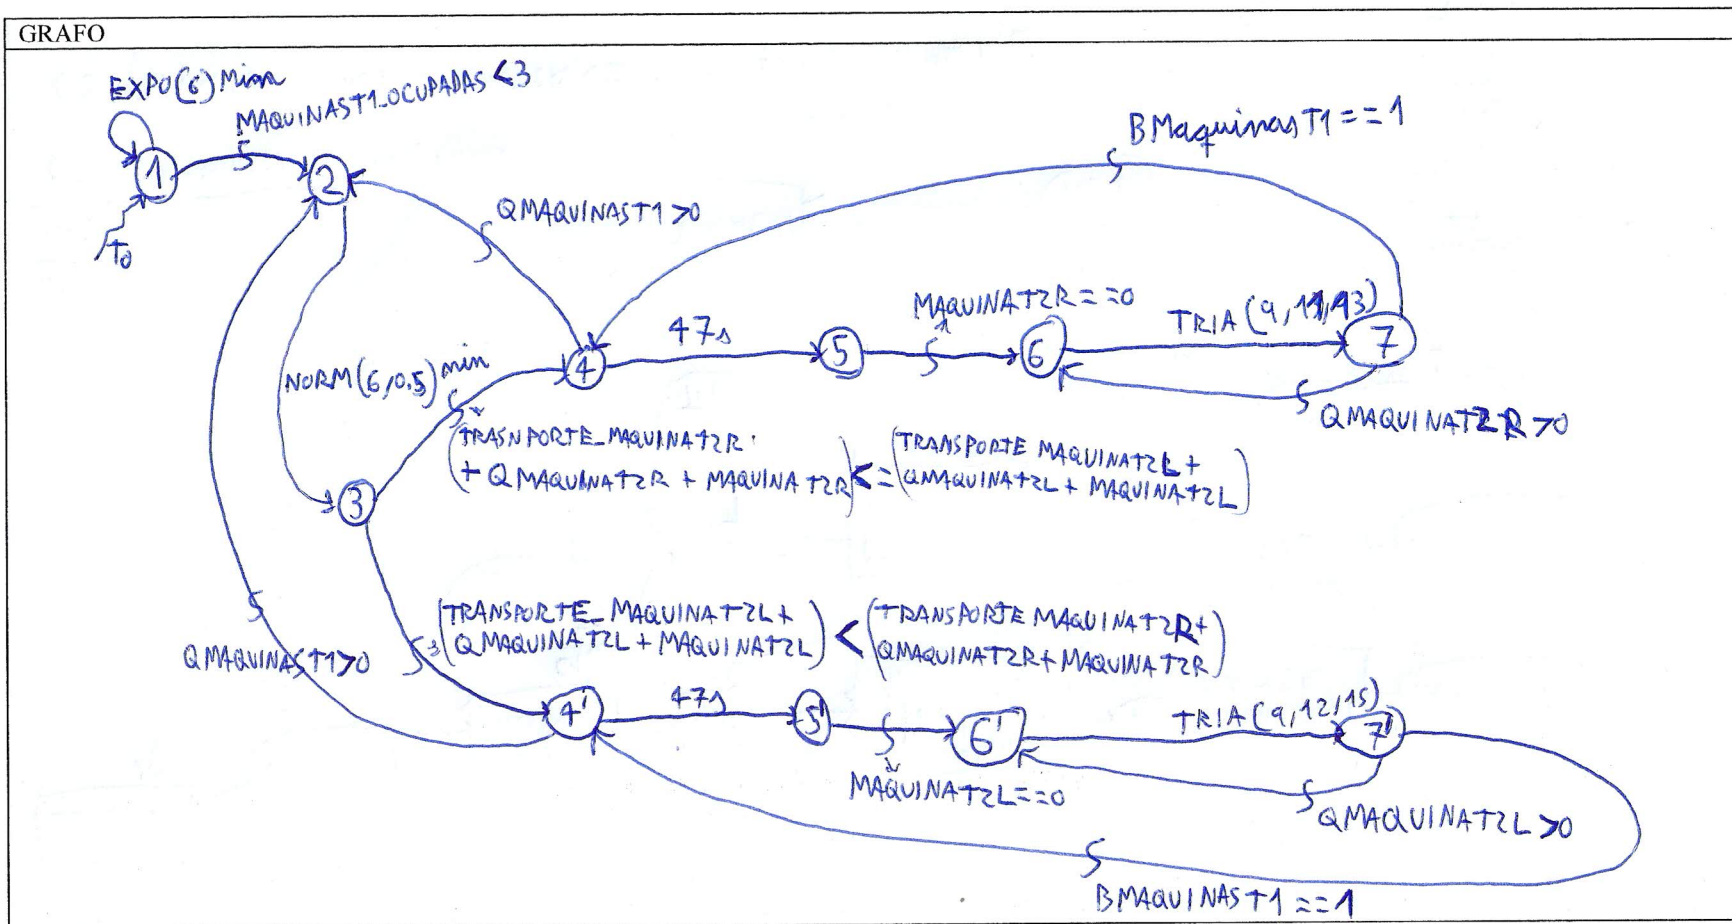 GRAFO
EXPO(6) Min
MAQUINAST1_OCUPADAS <3
BMaquinasT1==1
1
2
T0
QMAQUINAST1>0
MAQUINAT2R==0
TRIA(9,11,13)
47s
4
5
6
7
NORM(6,0.5) min
QMAQUINAT2R>0
(TRASNPORTE_MAQUINAT2R
+ QMAQUINAT2R + MAQUINAT2R) <= (TRANSPORTE MAQUINAT2L+
QMAQUINAT2L + MAQUINAT2L)
3
(TRANSPORTE_MAQUINAT2L+
QMAQUINAT2L + MAQUINAT2L) < (TRANSPORTE MAQUINAT2R+
QMAQUINAT2R+MAQUINAT2R)
QMAQUINAST1>0
4'
47s
5'
6'
TRIA(9,12,15)
7'
MAQUINAT2L==0
QMAQUINAT2L>0
BMAQUINAST1==1